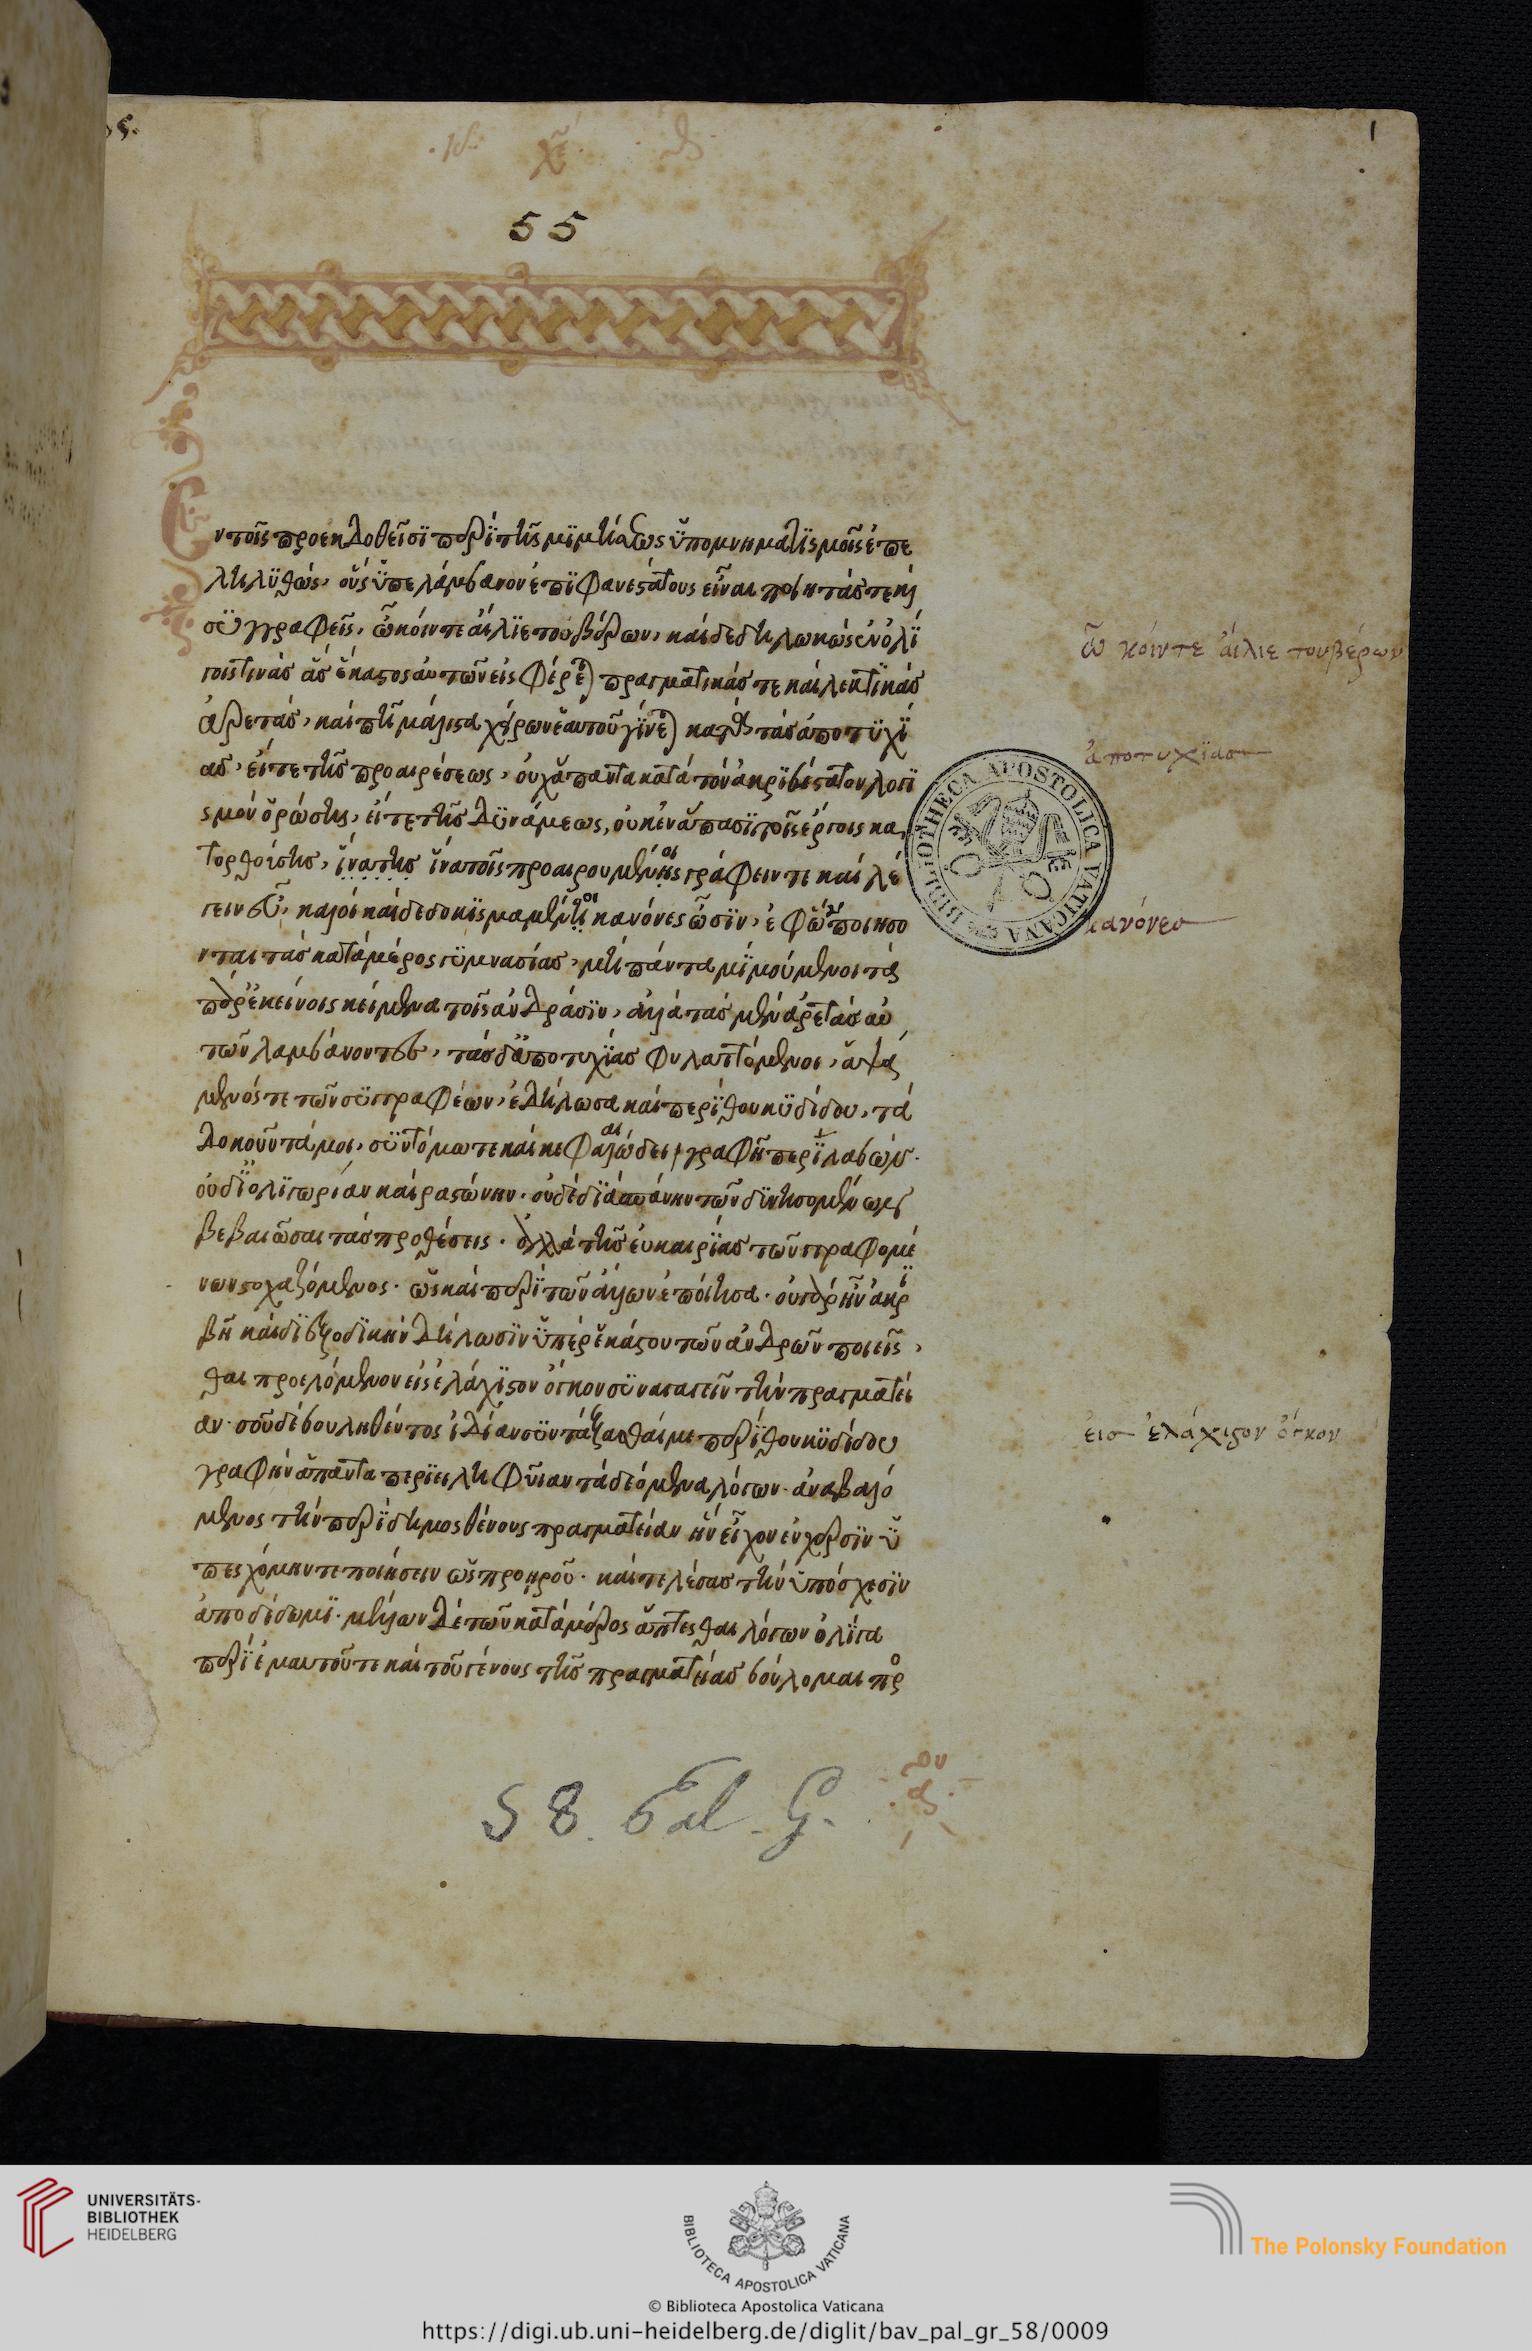 1
χε
55
Ἐν τοῖς προεκδοθεῖσι περὶ τῆς μιμήσεως ὑπομνηματισμοῖς ἐπε
ληλυθὼς, οὓς ὑπελάμβανον ἐπιφανεστάτους εἶναι ποιητάς τε καὶ
συγγραφεῖς, ὦ κόιντε ἄιλιε τουβέρων, καὶ δεδηλωκὼς ἐν ὀλί
γοις τινὰς ἃς ἕκαστος αὐτῶν εἰσφέρεται πραγματικάς τε καὶ λεκτικὰς
ἀρετὰς, καὶ πῆ μάλιστα χείρων ἑαυτοῦ γίνεται κατὰ τὰς ἀποτυχί
ας, εἴτε τῆς προαιρέσεως, οὐχ ἅπαντα κατὰ τὸν ἀκριβέστατον λογι
σμὸν ὁρώσης, εἴτε τῆς δυνάμεως, οὐκ ἐν ἅπασι τοῖς ἔργοις κα
τορθούσης, ἵνα της ἵνα τοῖς προαιρουμένοις γράφειν τε καὶ λέ
γειν εὖ, καλοὶ καὶ δεδοκιμασμένοι κανόνες ὦσιν, ἐφ' ὧν ποιήσο
νται τὰς κατὰ μέρος γυμνασίας, μὴ πάντα μιμούμενοι τὰ
παρ' ἐκείνοις κείμενα τοῖς ἀνδράσιν, ἀλλὰ τὰς μὲν ἀρετὰς αὐ
τῶν λαμβάνοντες, τὰς δ' ἀποτυχίας φυλαττόμενοι, ἁψά
μενός τε τῶν συγγραφέων, ἐδήλωσα καὶ περὶ θουκυδίδου, τὰ
δοκοῦντά μοι, συντόμω τε καὶ κεφαλαιώδει γραφῆ περιλαβὼν.
οὐ δι' ὀλιγωρίαν καὶ ραστώνην. οὐδὲ διὰ σπάνιν τῶν δυνησομένων
βεβαιῶσαι τὰς προθέσεις. ἀλλὰ τῆς εὐκαιρίας τῶν γραφομέ
νων στοχαζόμενος. ὡς καὶ περὶ τῶν ἄλλων ἐποίησα. οὐ γὰρ ἦν ἀκρι
βῆ καὶ διεξοδικὴν δήλωσιν ὑπὲρ ἑκάστου τῶν ἀνδρῶν ποιεῖσ
θαι προελόμενον εἰς ἐλάχιστον ὄγκον συναγαγεῖν τὴν πραγματεί
αν. σοῦ δὲ βουληθέντος ἰδίαν συντάξασθαί με περὶ θουκυδίδου
γραφὴν ἅπαντα περιειληφυῖαν τὰ δεόμενα λόγων. ἀναβαλό
μενος τὴν περὶ δημοσθένους πραγματείαν ἣν εἶχον ἐν χερσὶν ὑ
πεσχόμην τε ποιήσειν ὡς προηροῦ. καὶ τελέσας τὴν ὑπόσχεσιν
ἀποδίδωμι. μέλλων δὲ τῶν κατὰ μέρος ἅπτεσθαι λόγων ὀλίγα
περὶ ἐμαυτοῦ τε καὶ τοῦ γένους τῆς πραγματείας βούλομαι προ
ὦ κόιντε ἄιλιε τουβέρων
ἀποτυχίας
κανόνες
εἰς ἐλάχιστον ὄγκον
BIBLIOTHECA APOSTOLICA VATICANA
58. Pal. G.
UNIVERSITÄTS-
BIBLIOTHEK
HEIDELBERG
BIBLIOTECA APOSTOLICA VATICANA
The Polonsky Foundation
© Biblioteca Apostolica Vaticana
https://digi.ub.uni-heidelberg.de/diglit/bav_pal_gr_58/0009